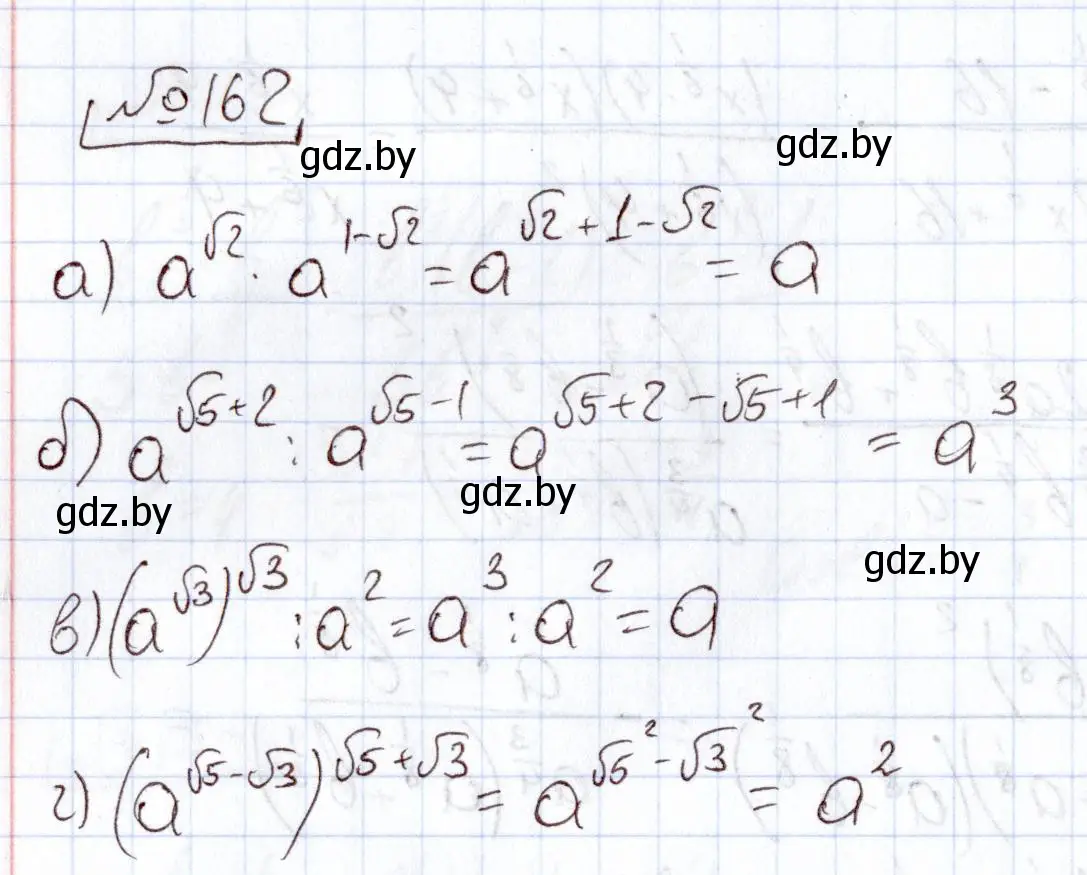 №162
gdz.by
gdz.by
а) a^{√2} · a^{1-√2} = a^{√2+1-√2} = a
б) a^{√5+2} : a^{√5-1} = a^{√5+2-√5+1} = a^3
gdz.by
gdz.by
gdz.by
в) (a^{√3})^{√3} : a^2 = a^3 : a^2 = a
г) (a^{√5-√3})^{√5+√3} = a^{√5^2-√3^2} = a^2